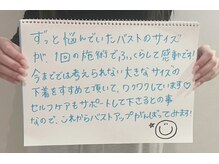 ずっと悩んでいたバストのサイズ
が、1回の施術でふっくらして感動です!
今までとは考えられない大きなサイズの
下着をすすめて頂いて、ワクワクしています♡
セルフケアもサポートして下さるとの事
なので、これからバストアップがんばってみます!